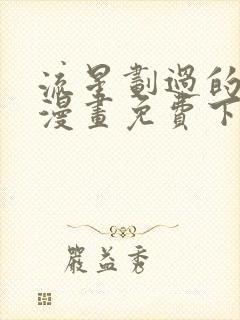 流星劃過的
漫畫免費下
嚴益秀